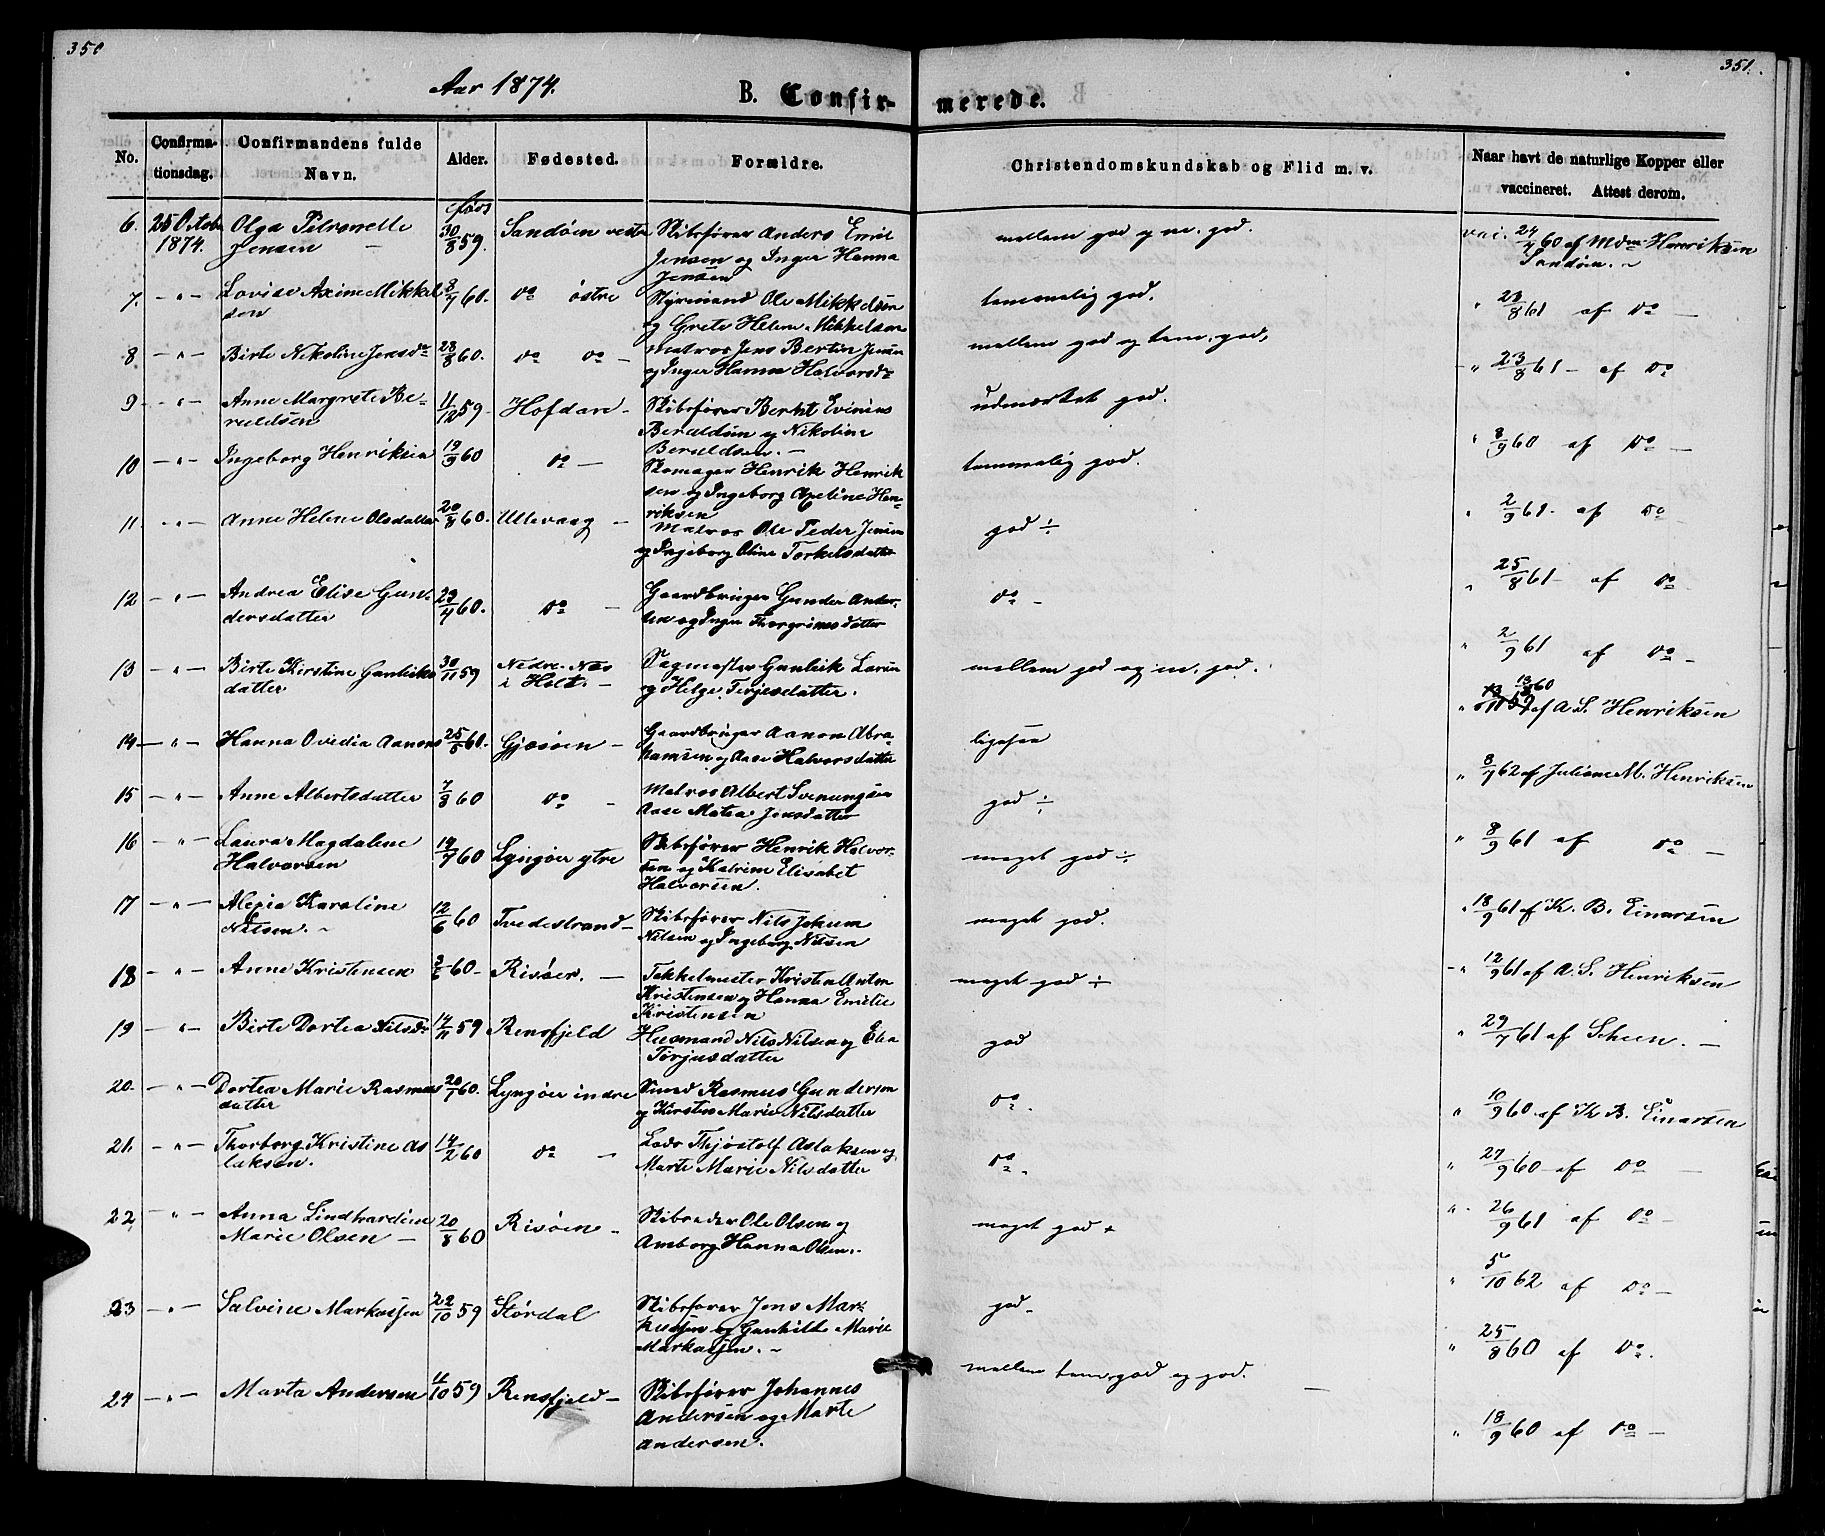 350
351.
Aar 1874.
B. Confir-
merede.
No.
Confirma-
tionsdag.
Confirmandens fulde
Navn.
Alder.
Fødested.
Forældre.
Christendomskundskab og Flid m. v.
Naar havt de naturlige Kopper eller
vaccineret. Attest derom.
6. 25 October 1874. Olga Petronelle Jensen – født 30/8 59. Sandøen vestre Skibsfører Anders Emil Jensen og Inger Hanna Jensen mellem god og m. god. vac. 24/4 60 af Mdm Henriksen Sandøen. –
7. – " – Lovise Axine Mikkelsen 8/7 60. do østre Styrmand Ole Mikkelsen og Grete Helene Mikkelsen temmelig god. " 23/8 61 af do –
8 – " – Birte Nikoline Jensdr 28/8 60. do do – Matros Jens Bertin Jensen og Inger Hanna Halvorsdr mellem god og tem. god. – " 23/8 61 – af do
9 – " – Anne Margrete Beruldsen 11/12 59 – Hofdan – Skibsfører Bernt Evinius Beruldsen og Nikoline Beruldsen. – udmærket god. " 8/9 60 af do –
10 – " – Ingeborg Henriksen 19/9 60 do – Skomager Henrik Henriksen og Ingeborg Axeline Henriksen temmelig god. " 2/9 61. af do –
11. – " – Anne Helene Olsdatter 20/8 60. Ullevaag – Matros Ole Peder Jensen og Ingeborg Oline Torkelsdatter god ÷ " 25/8 61 – af do
12 – " – Andrea Elise Gundersdatter 29/4 60. do – Gaardbruger Gunder Andersen og Inger Thorgrimsdatter do – " 2/9 61 af do –
13 – " – Birte Kirstine Gunleiksdatter 30/11 59 Nedre Næs i Holt. – Sagmester Gunleik Larsen og Helge Terjesdatter. mellem god og m. god. " 13/8 60 af A. S. Henriksen
14 – " – Hanna Ovedia Aanons 25/8 60. Gjæsøen – Gaardbruger Aanon Abrahamsen og Aase Halvorsdatter ligesaa " 8/7 62 af Juliane M. Henriksen
15 – " – Anne Albertsdatter 7/8 60 do – Matros Albert Svenungsen Aase Matea Jensdatter god ÷ " 8/9 61 af do –
16 – " – Laura Magdalene Halvorsen 14/7 60 Lyngøer ytre Skibsfører Henrik Halvorsen og Katrine Elisabet Halvorsen. meget god ÷ " 18/9 61 af K. B. Einarsen
17 – " – Alexia Karoline Nilsen. – 12/6 60 Tvedestrand – Skibsfører Nils Jokum Nilsen og Ingeborg Nilsen meget god. – " 12/9 61 af A. S. Henriksen
18 – " – Anne Kristensen 3/6 60 – Risøer. – Takkelmester Kristen Anton Kristensen og Hanna Emilie Kristensen meget god ÷ " 29/7 61 af Scheen. –
19 – " – Birte Dortea Nilsdr 14/11 59 Rensfjeld Husmand Nils Nilsen og Elea Torjusdatter god " 10/9 60 af K. B. Einarsen
20. – " – Dortea Marie Rasmusdatter 20/7 60. Lyngøer indre Smed Rasmus Gundersen og Kirsten Marie Nilsdatter do. " 27/9 60 – af do –
21. – " – Thorborg Kristine Aslaksen. 14/2 60 do – Lods Thjøstolf Aslaksen og Marte Marie Nilsdatter do. " 26/9 61 af do –
22 – " – Anna Lindhardine Marie Olsen – 20/8 60 Risøen – Skibsreder Ole Olsen og Amborg Hanna Olsen. meget god + " 5/10 62 af do –
23 – " – Salvine Markussen 22/10 59 Størdal Skibsfører Jens Markussen og Gunhild Marie Markussen. – god. " 25/8 60 af do.
24 – " – Marta Andersen 4/10 59 Rensfjeld – Skibsfører Johannes Andersen og Marte Andersen. mellem tem. god og god. – " 18/9 60 af do –